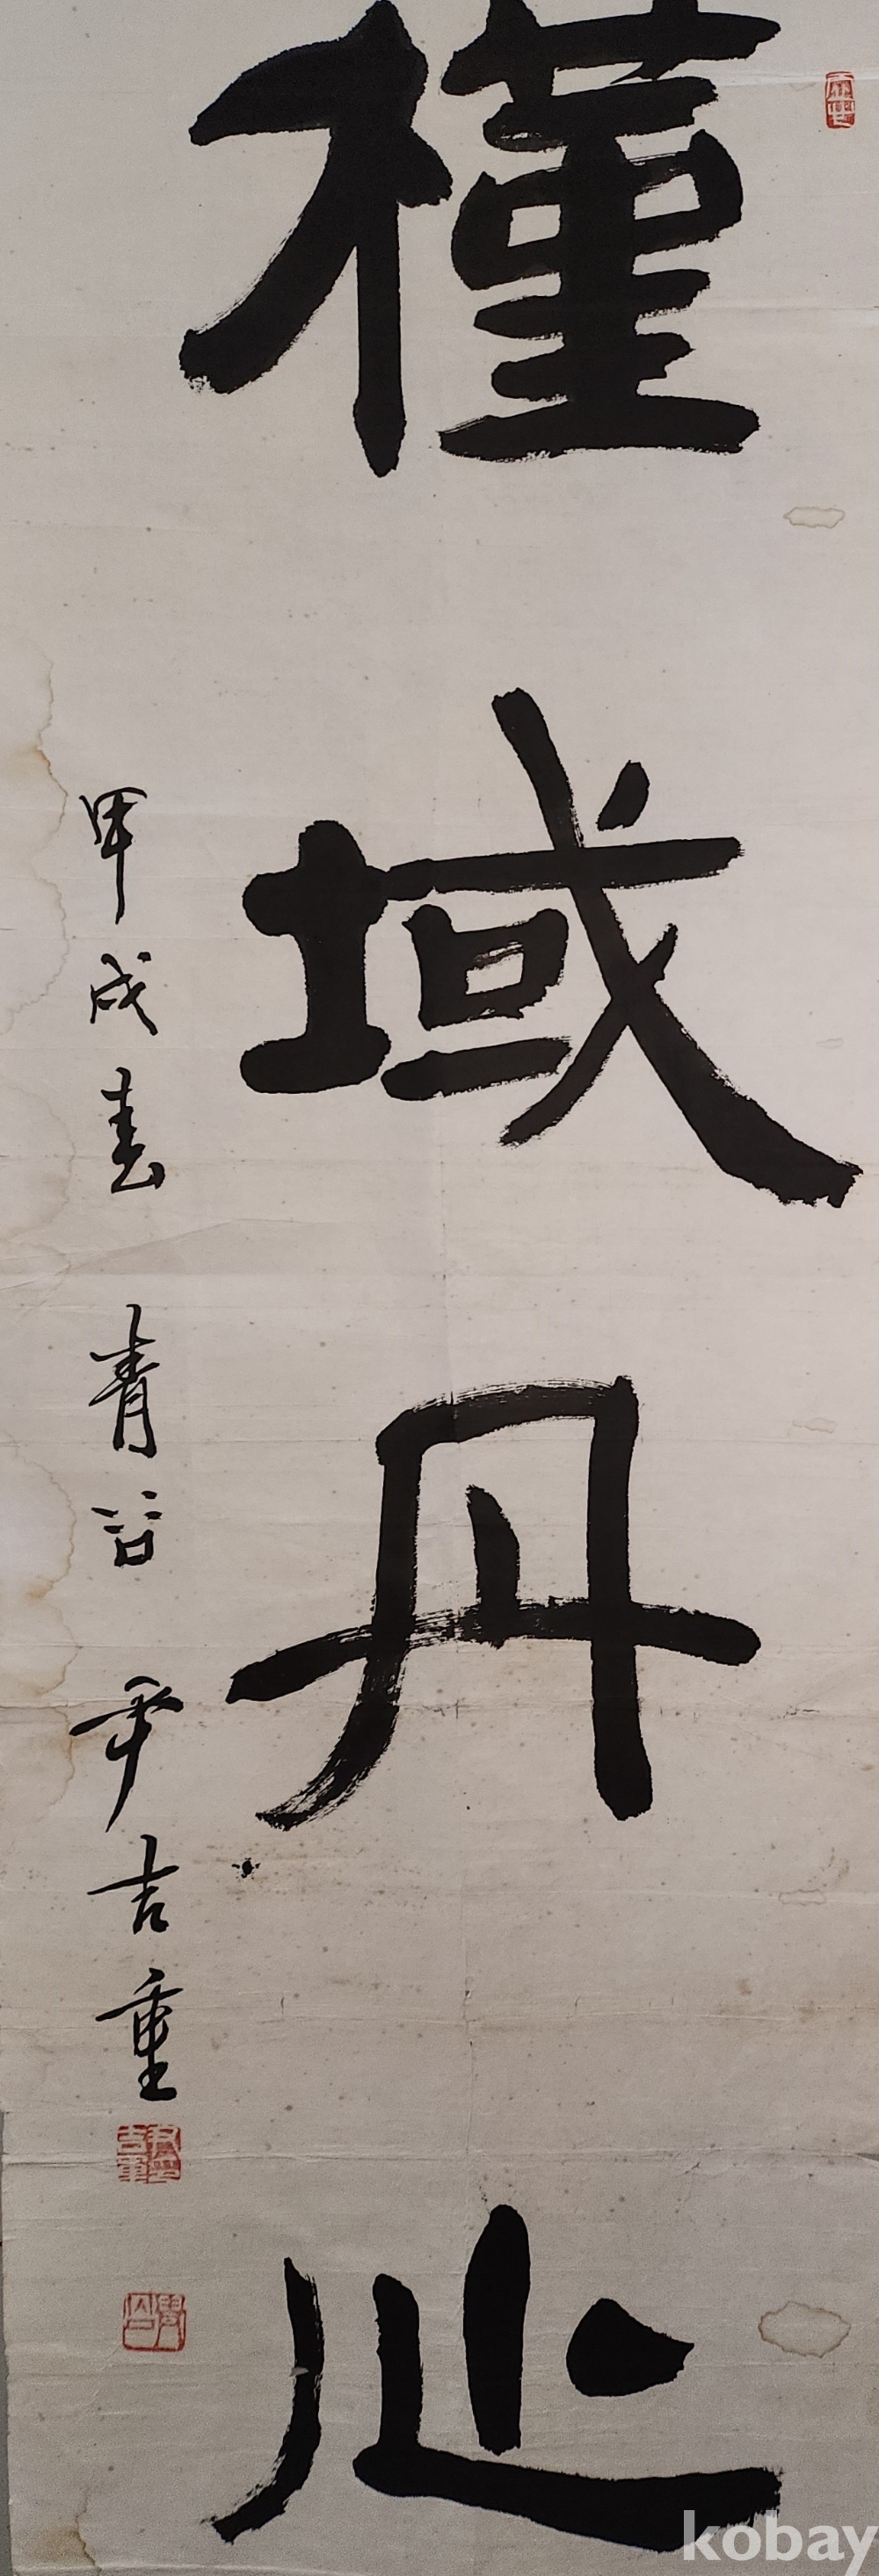 槿域丹心
甲戌春 青谷 尹吉重
kobay